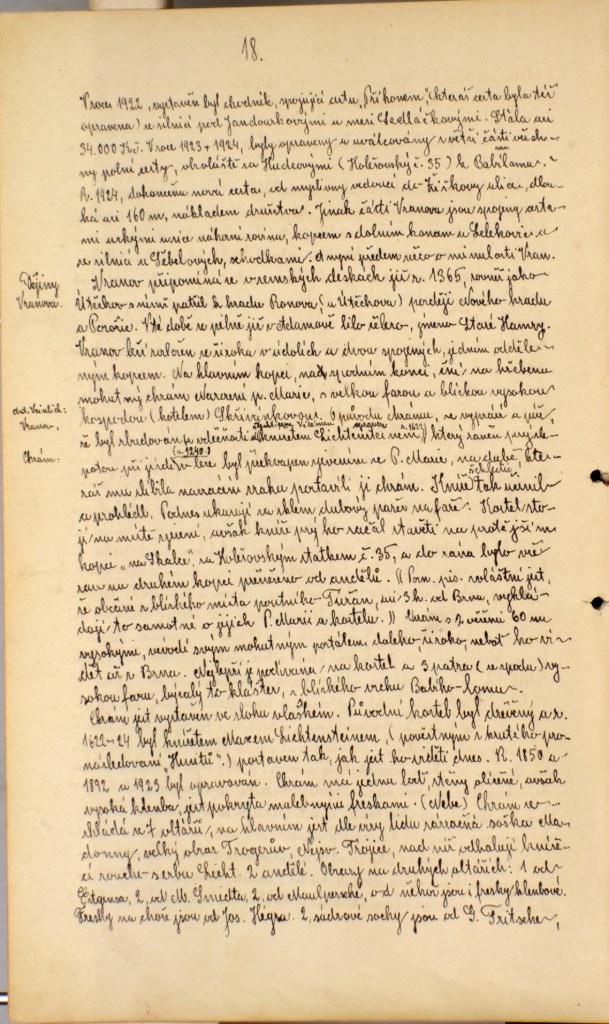 18.
V roce 1922, vystavěn byl chodník, spojující cestu „Příhonem", (kteráž cesta byla též
opravena) se silnicí pod Jandourkovými a mezi Sedláčkovými. Stála asi
34.000 Kč. V roce 1923 + 1924, byly opraveny a uválcovány z větší části všech-
ny polní cesty, obzvláště za Hudcovými (Kolčovský č. 35) k Babí lomu.
R. 1924, dokončena nová cesta, od myslivny vedoucí do Žižkovy ulice, dlou-
há asi 160 m, nákladem družstva. Jinak části Vranova jsou spojeny cesta-
mi úzkými sice náhorní rovina, kopcem s dolním koncem u Lelekovic a
se silnicí u Sébelových, schodkami. A nyní předem něco o minulosti Vran.
Dějiny
Vranova.
Vranov připomíná se v zemských deskách již r. 1365, rovněž jako
Útěchov s nímž patřil k hradu Ronovu, (u Útěchova) později Nového hradu
a Pozořic. V té době se pilně již v Adamově lilo železo, jméno Staré Hamry.
Vranov leží rozložen ze široka v údolích a dvou spojených, jedním odděle-
ným kopcem. Na hlavním kopci, nad spodním koncí, ční na hřebenu
mohutný chrám Narození p. Marie, s velkou farou a blízkou vysokou
hospodou (hotelem) Skřivánkovou. O původu chrámu, se vypráví a též
Vranov.
Chrám:
že byl zbudován z vděčnosti knížetem Lichtensteinem, který raněn prý sle-
(r. 1240.)
potou při jízdě v lese byl překvapen zjevením se P. Marie, na dubě, kte-
ráž mu slíbila navrácení zraku postaví-li jí chrám. Kníže tak učinil
a prohlédl. Podnes ukazují za sklem dubový pařez na faře. Kostel sto-
jí na místě zjevení, avšak kníže prý ho začal stavěti na protějším
kopci „na Skalce", za Kolčovským statkem č. 35, a do rána bylo vše
zase na druhém kopci přeneseno od andělů. (( Pozn. pis. zvláštní jest,
že občané z blízkého místa poutního Tuřan, asi 3 h. od Brna, vyklá-
dají to samotné o jejich P. Marii a kostelu. )) Chrám, s 2 věžemi 60 m
vysokými, vévodí svým mohutným portálem daleko široko, neboť ho vi-
dět až z Brna. Nejlepší je podívaná na kostel a 3 patra (ze spodu) vy-
sokou faru, bývalý to klášter, z blízkého vrchu Babího-lomu.
Chrám jest vystavěn ve slohu vlašském. Původní kostel byl dřevěný a r.
1622-24 byl knížetem Maxem Lichtensteinem, (pověstným z krutého pro-
následování „Husitů".) postaven tak, jak jest ho viděti dnes. R. 1850 a
1892 a 1923 byl opravován. Chrám má jednu loď, stěny oblíčné, avšak
vysoká klenba, jest pokryta malebnými freskami. (Nebe) Chrám se-
skládá ze 7 oltářů, na hlavním jest dle víry lidu zázračná soška Ma-
donny, velký obraz Trogerův, Nejsv. Trojice, nad níž odhalují kníže-
cí roucho s erbu Licht. 2 andělé. Obrazy na druhých oltářích: 1 od
Etgensa, 2, od M. Smidta, 2, od Maulpersche, od něhož jsou i fresky klenbové.
Fresky na choře jsou od Jos. Hegra. 2, sádrové sochy jsou od G. Fritsche,